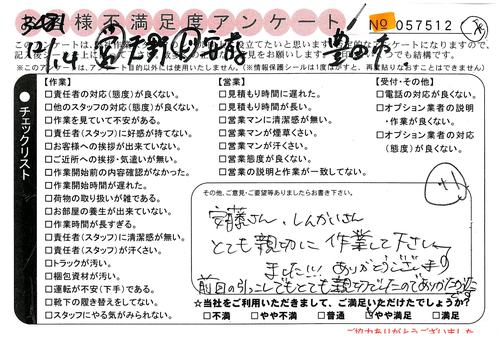 お客様不満足度アンケート
No 057512
12/14
豊田市
このアンケートは、
※このアンケートは、アンケート目的以外には使用いたしません。(※情報保護シールは1度はがすと、再度貼りなおすことはできません)
チェックリスト
【作業】
□責任者の対応(態度)が良くない。
□他のスタッフの対応(態度)が良くない。
□作業を見ていて不安がある。
□責任者(スタッフ)に好感が持てない。
□お客様への挨拶が出来ていない。
□ご近所への挨拶・気遣いが無い。
□作業開始前の内容確認がなかった。
□作業開始時間が遅れた。
□荷物の取り扱いが雑である。
□お部屋の養生が出来ていない。
□作業時間が長すぎる。
□責任者(スタッフ)に清潔感が無い。
□責任者(スタッフ)が汗くさい。
□トラックが汚い。
□梱包資材が汚い。
□運転が不安(下手)である。
□靴下の履き替えをしてない。
□スタッフにやる気がみられない。
【営業】
□見積もり時間に遅れた。
□見積もり時間が長い。
□営業マンに清潔感が無い。
□営業マンが煙草くさい。
□営業マンが汗くさい。
□営業態度が良くない。
□営業の説明と作業が一致してない。
【受付・その他】
□電話の対応が良くない。
□オプション業者の説明・作業が良くない。
□オプション業者の対応(態度)が良くない。
その他、ご意見・ご要望等ありましたらお書き下さい。
安藤さん、しんかいさん
とても親切に作業して下さい
ました!!! ありがとうございます
前回の引っこしでもとても親切でしたのでありがたかったです。
☆当社をご利用いただきまして、ご満足いただけたでしょうか?
□不満 □やや不満 □普通 □やや満足 □満足
ご協力ありがとうございました